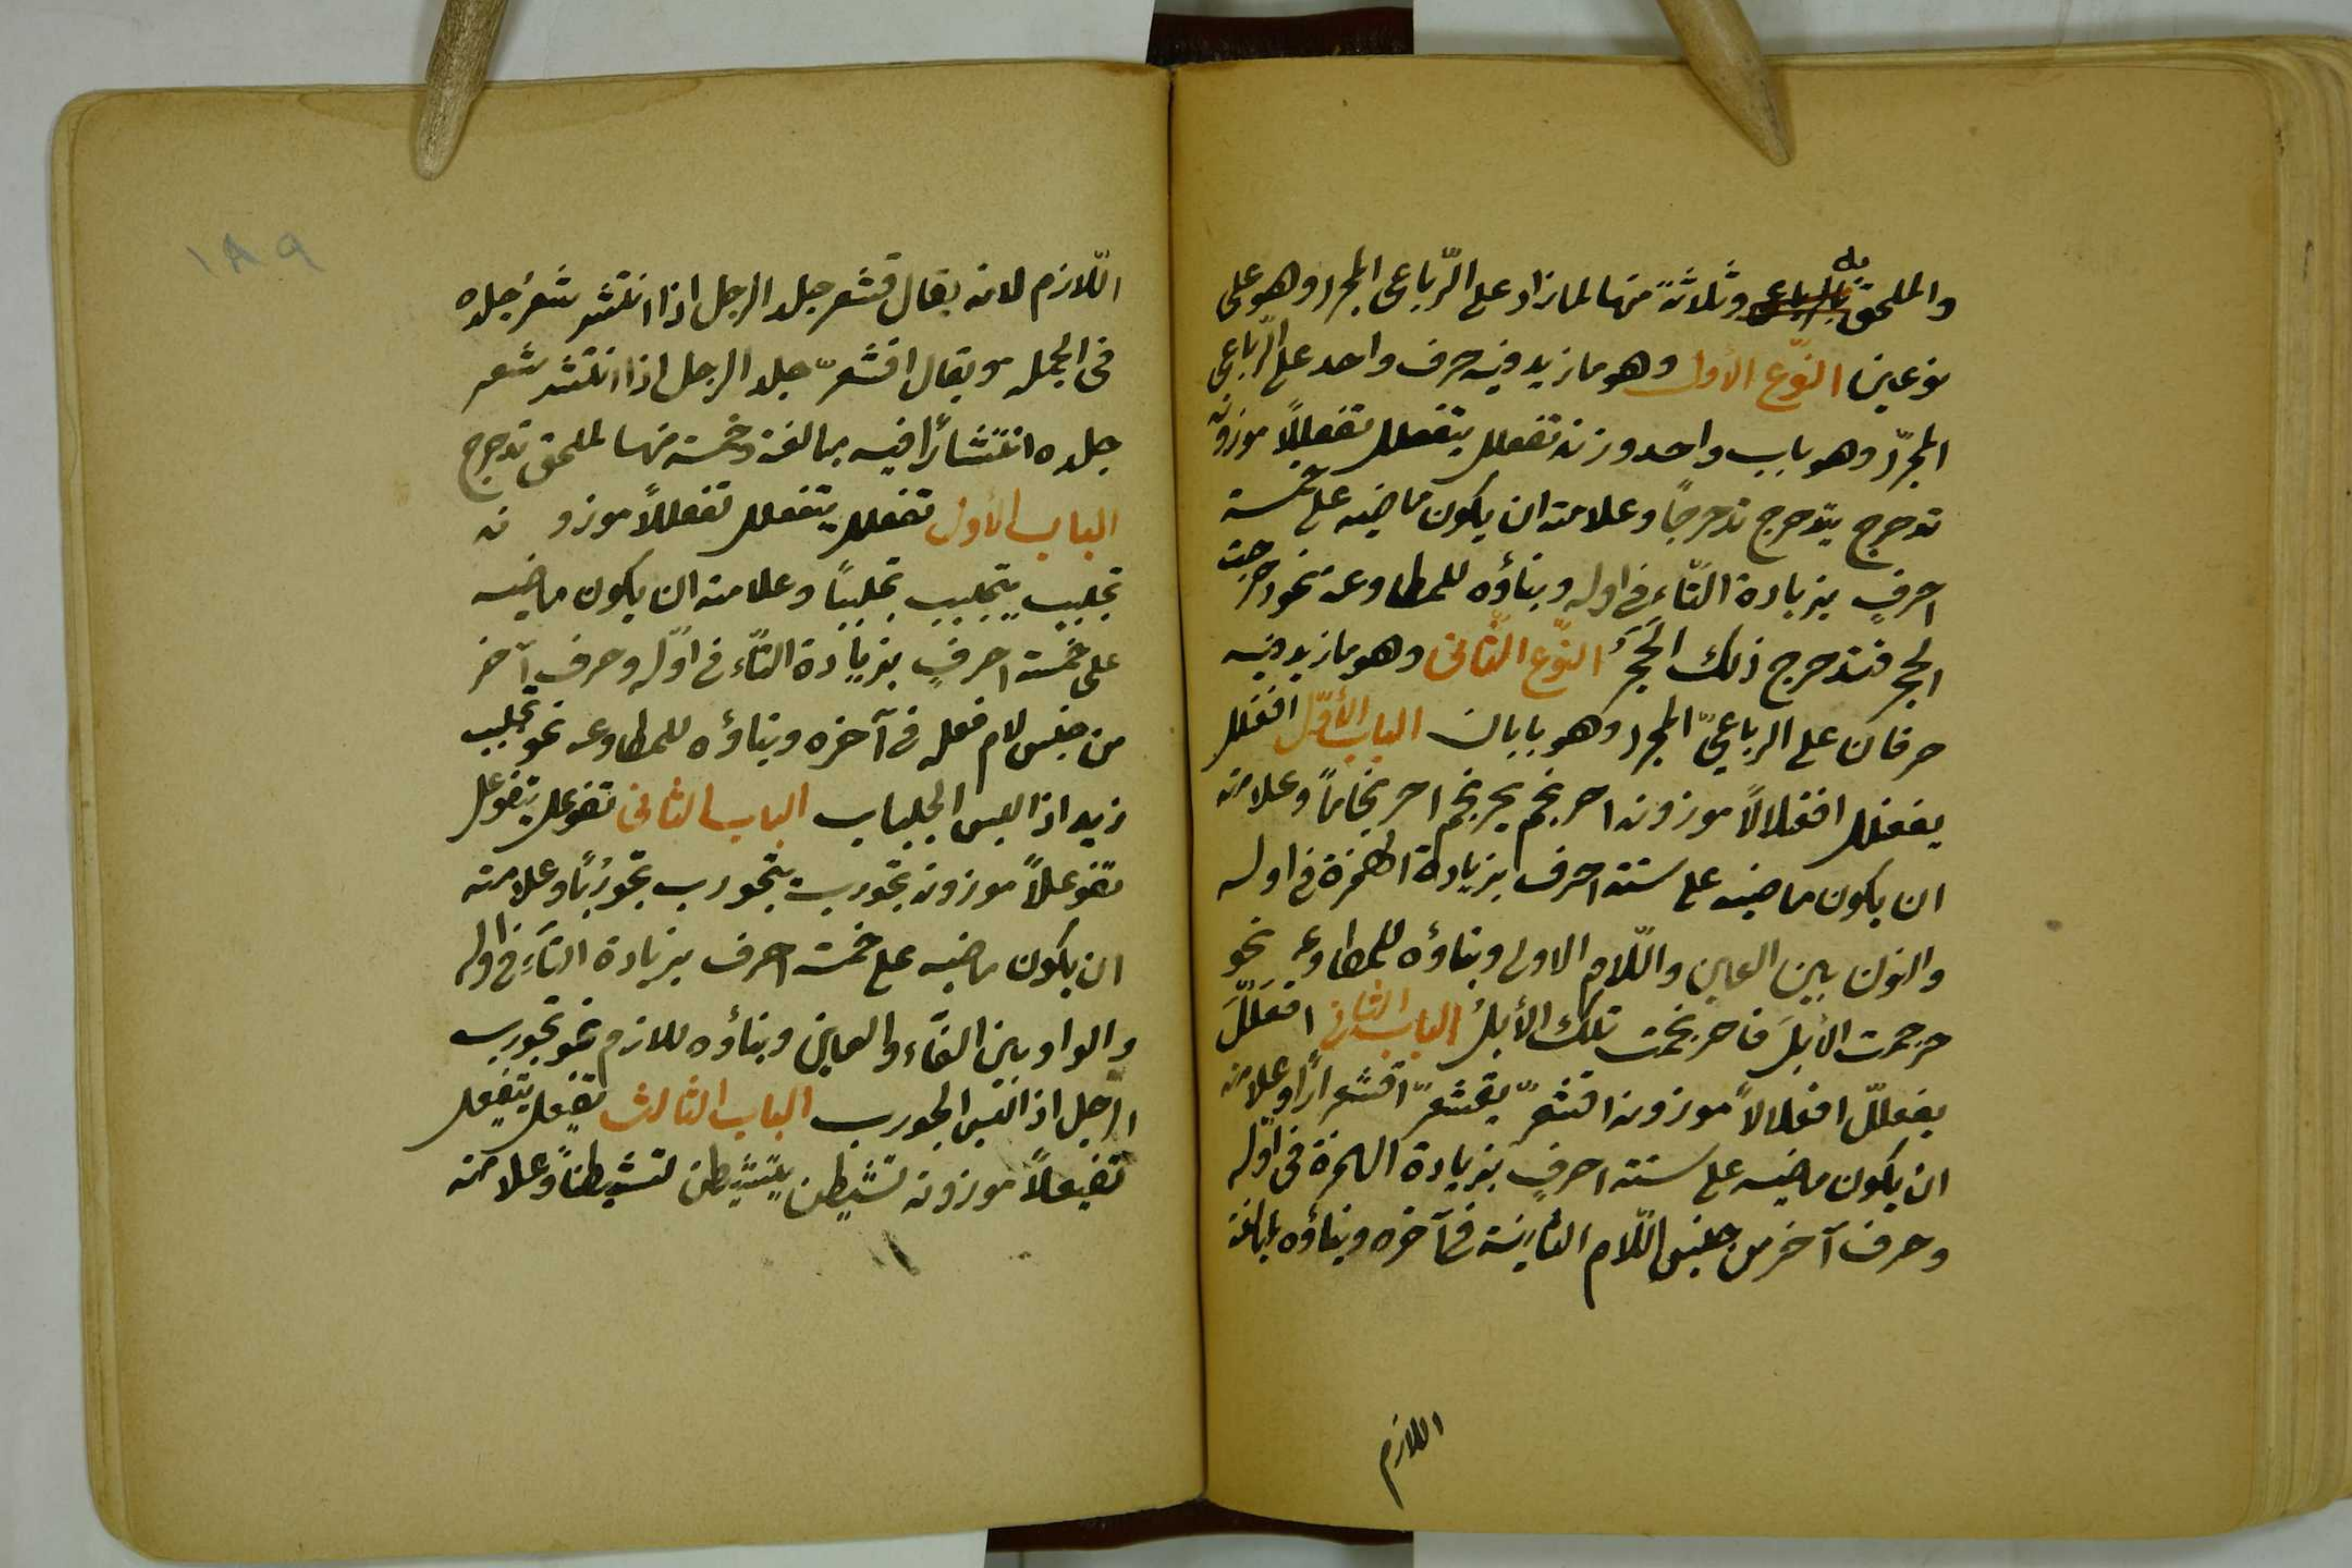 والملحق به وثلاثة منها لما زاد على الرّباعى المجرد وهو على
نوعين النّوع الأول وهو ما زيد فيه حرف واحد على الرّباعى
المجرّد وهو باب واحد وزنه تفعلل يتفعلل تفعللًا موزونه
تدحرج يتدحرج تدحرجًا وعلامته ان يكون ماضيه على خمسة
احرفٍ بزيادة التّاء فى اوله وبناؤه للمطاوعة نحو دحرجت
الحجر فتدحرج ذلك الحَجَرُ النّوع الثّانى وهو ما زيد فيه
حرفان على الرباعىّ المجرد وهو بابان الباب الأوّل افعنلل
يفعنلل افعنلالًا موزونه احرنجم يحرنجم احرنجامًا وعلامته
ان يكون ماضيه على ستة احرف بزيادة الهمزة فى اوله
والنون بين العين واللّام الاولى وبناؤه للمطاوعه نحو
حرجمت الابلَ فاحرنجمت تلك الأبلُ الباب الثانى افعَلَلَّ
يفعللّ افعلالًا موزونه اقشعرّ يقشعرّ اقشعرارًا وعلامته
ان يكون ماضيه على ستة احرفٍ بزيادة الهمزة فى اوّله
وحرف آخر من جنس اللّام الثانية فى آخره وبناؤه لمبالغة
اللازم
١٨٩
اللّازم لانه يقال قشعر جلد الرجل اذا انتشر شعرُ جلده
فى الجمله ويقال اقشعرّ جلد الرجل اذا انتشر شعر
جلده انتشارًا فيه مبالغة وخمسة منها لملحق تدحرج
الباب الأول تفعلل يتفعلل تفعللًا موزونه
تجلبب يتجلبب تجلببًا وعلامته ان يكون ماضيه
على خمسة احرفٍ بزيادة التّاء فى اوّله وحرف آخر
من جنس لام فعله فى آخره وبناؤه للمطاوعه نحو تجلبب
زيد اذا لبس الجلباب الباب الثانى تفوعل يتفوعل
تفوعلًا موزونه تجورب يتجورب تجورُبًا وعلامته
ان يكون ماضيه على خمسة احرف بزيادة التاءِ فى اوله
والواو بين الفاء والعين وبناؤه للازم نحو تجورب
الرّجل اذا لبس الجورب الباب الثالث تفيعل يتفيعل
تفيعلًا موزونه تشيطن يتشيطن تشيطنًا وعلامته